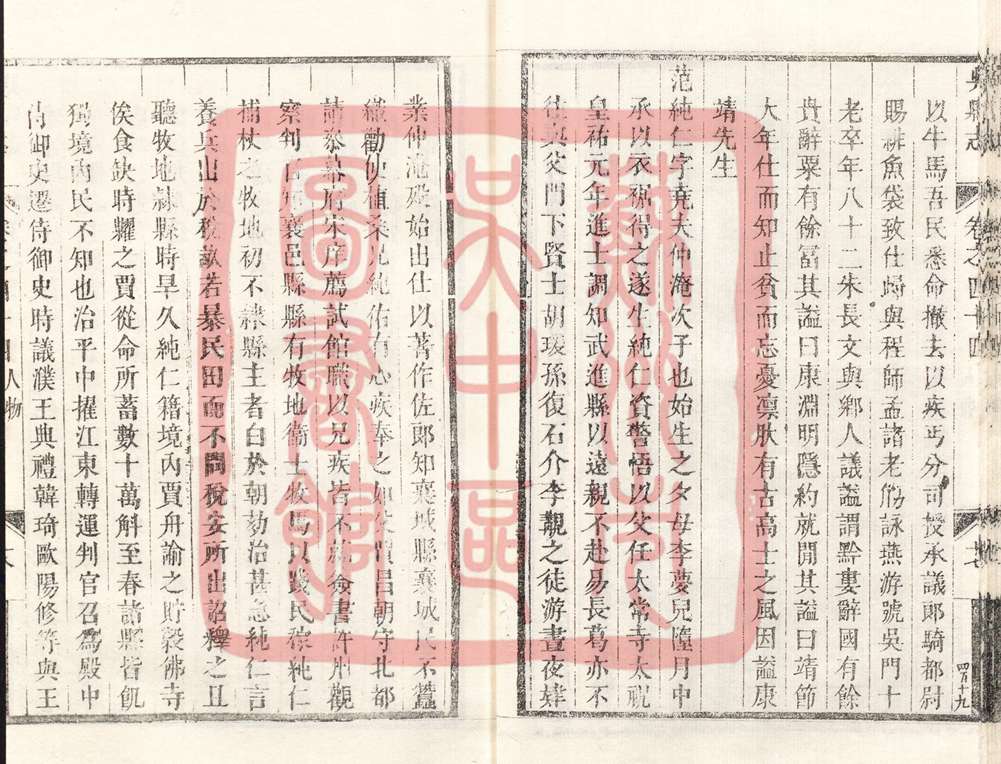 以牛馬吾民悉命撤去以疾丐分司授承議郎騎都尉
賜緋魚袋致仕歸與程師孟諸老觴詠燕游號吳門十
老卒年八十二朱長文與鄉人議謚謂黔婁辭國有餘
貴辭粟有餘富其謚曰康淵明隱約就閒其謚曰靖節
大年仕而知止貧而忘憂凛肰有古高士之風因謚康
靖先生
范純仁字堯夫仲淹次子也始生之夕母李夢兒墮月中
承以衣裾得之遂生純仁資警悟以父任太常寺太祝
皇祐元年進士調知武進縣以遠親不赴易長葛亦不
往與父門下賢士胡瑗孫復石介李覯之徒游晝夜肄
業仲淹歿始出仕以著作佐郎知襄城縣襄城民不蠶
織勸使植桑兄純佑有心疾奉之如父賈昌朝守北都
請參幕府宋庠薦試館職以兄疾皆不赴僉書許州觀
察判官知襄邑縣縣有牧地衛士牧馬以踐民稼純仁
捕杖之牧地初不隸縣主者白於朝劾治甚急純仁言
養兵出於稅畝若暴民田而不問稅安所出詔釋之且
聽牧地隸縣時旱久純仁籍境內賈舟諭之貯穀佛寺
俟食缺時糶之賈從命所蓄數十萬斛至春諸縣皆飢
獨境內民不知也治平中擢江東轉運判官召爲殿中
侍御史遷侍御史時議濮王典禮韓琦歐陽修等與王
吳縣志
卷之四十四
四百十九
人物
蘇州市
吳中區
圖書館